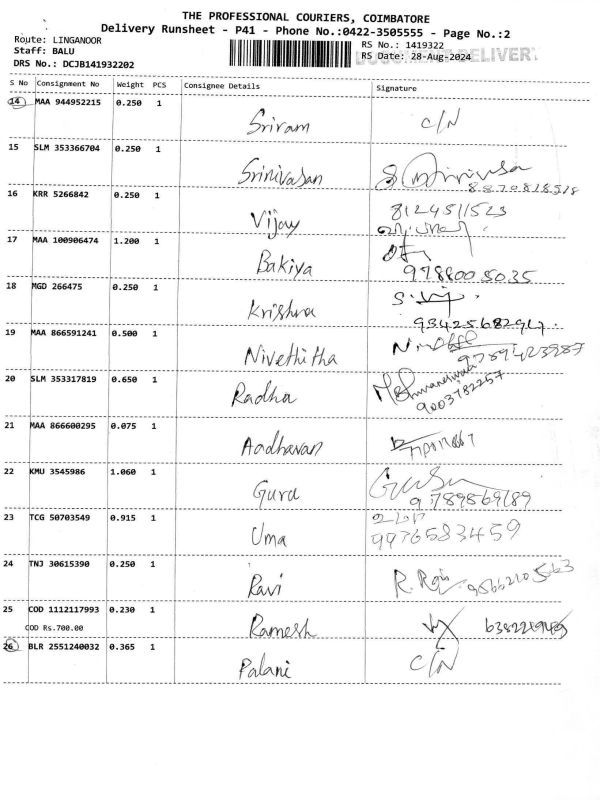 THE PROFESSIONAL COURIERS, COIMBATORE
Delivery Runsheet - P41 - Phone No.:0422-3505555 - Page No.:2
Route: LINGANOOR
Staff: BALU
DRS No.: DCJB141932202
RS No.: 1419322
RS Date: 28-Aug-2024
S No Consignment No Weight PCS Consignee Details Signature
14 MAA 944952215 0.250 1 Sriram C/N
15 SLM 353366704 0.250 1 Srinivasan
16 KRR 5266842 0.250 1 Vijay 8124511523
17 MAA 100906474 1.200 1 Bakiya 9788005035
18 MGD 266475 0.250 1 Krishna
19 MAA 866591241 0.500 1 Nivethitha 9789423987
20 SLM 353317819 0.650 1 Radha 9003782257
21 MAA 866600295 0.075 1 Aadhavan
22 KMU 3545986 1.060 1 Guru 9789869189
23 TCG 50703549 0.915 1 Uma உமா 9976583459
24 TNJ 30615390 0.250 1 Ravi
25 COD 1112117993 0.230 1 Ramesh
COD Rs.700.00
26 BLR 2551240032 0.365 1 Palani C/N